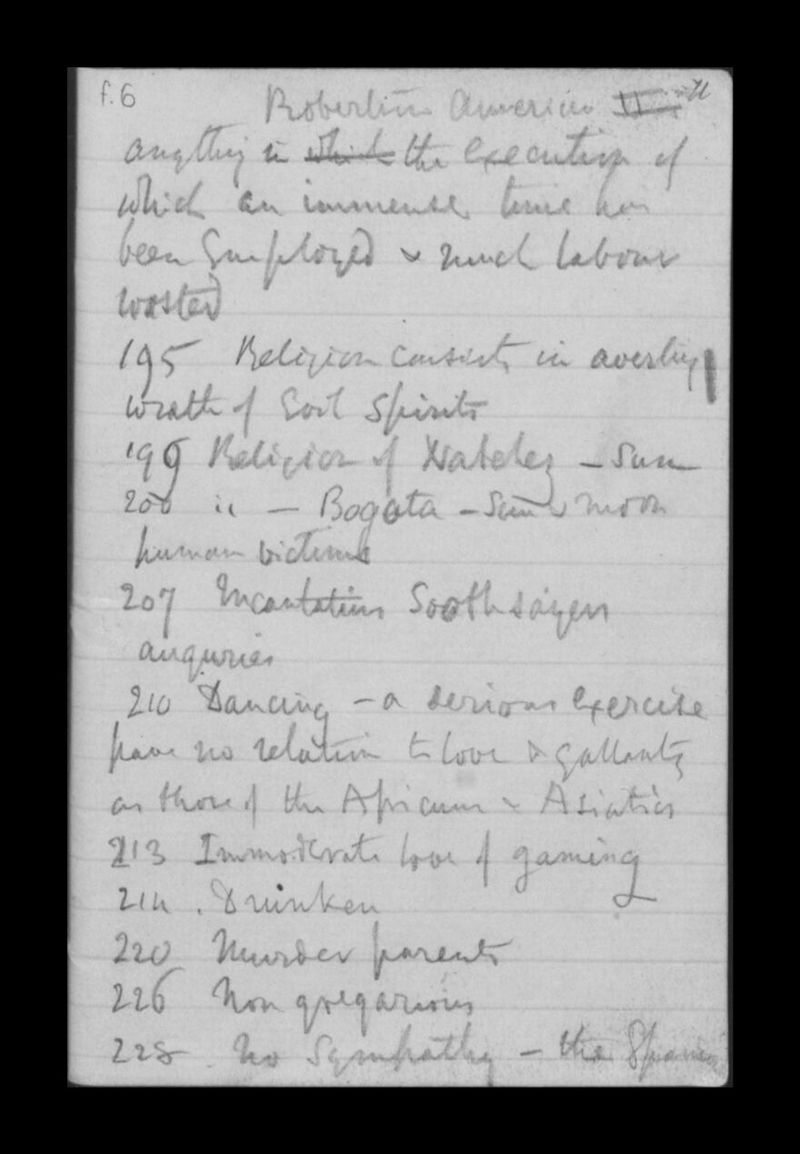 f.6
Robertson America II
anything in which the execution of
which an immense time has
been Employed & much labour
wasted
195 Religion consists in averting
wrath of Evil Spirits
199 Religion of Natchez - Sun
200 " - Bogota - Sun & moon
human victims
207 Incantations Soothsayers
auguries
210 Dancing - a serious Exercise
have no relation to love & gallantry
as those of the Africans & Asiatics
213 Immoderate love of gaming
214. Drunken
220 Murder parents
226 Non gregarious
228 No Sympathy - the